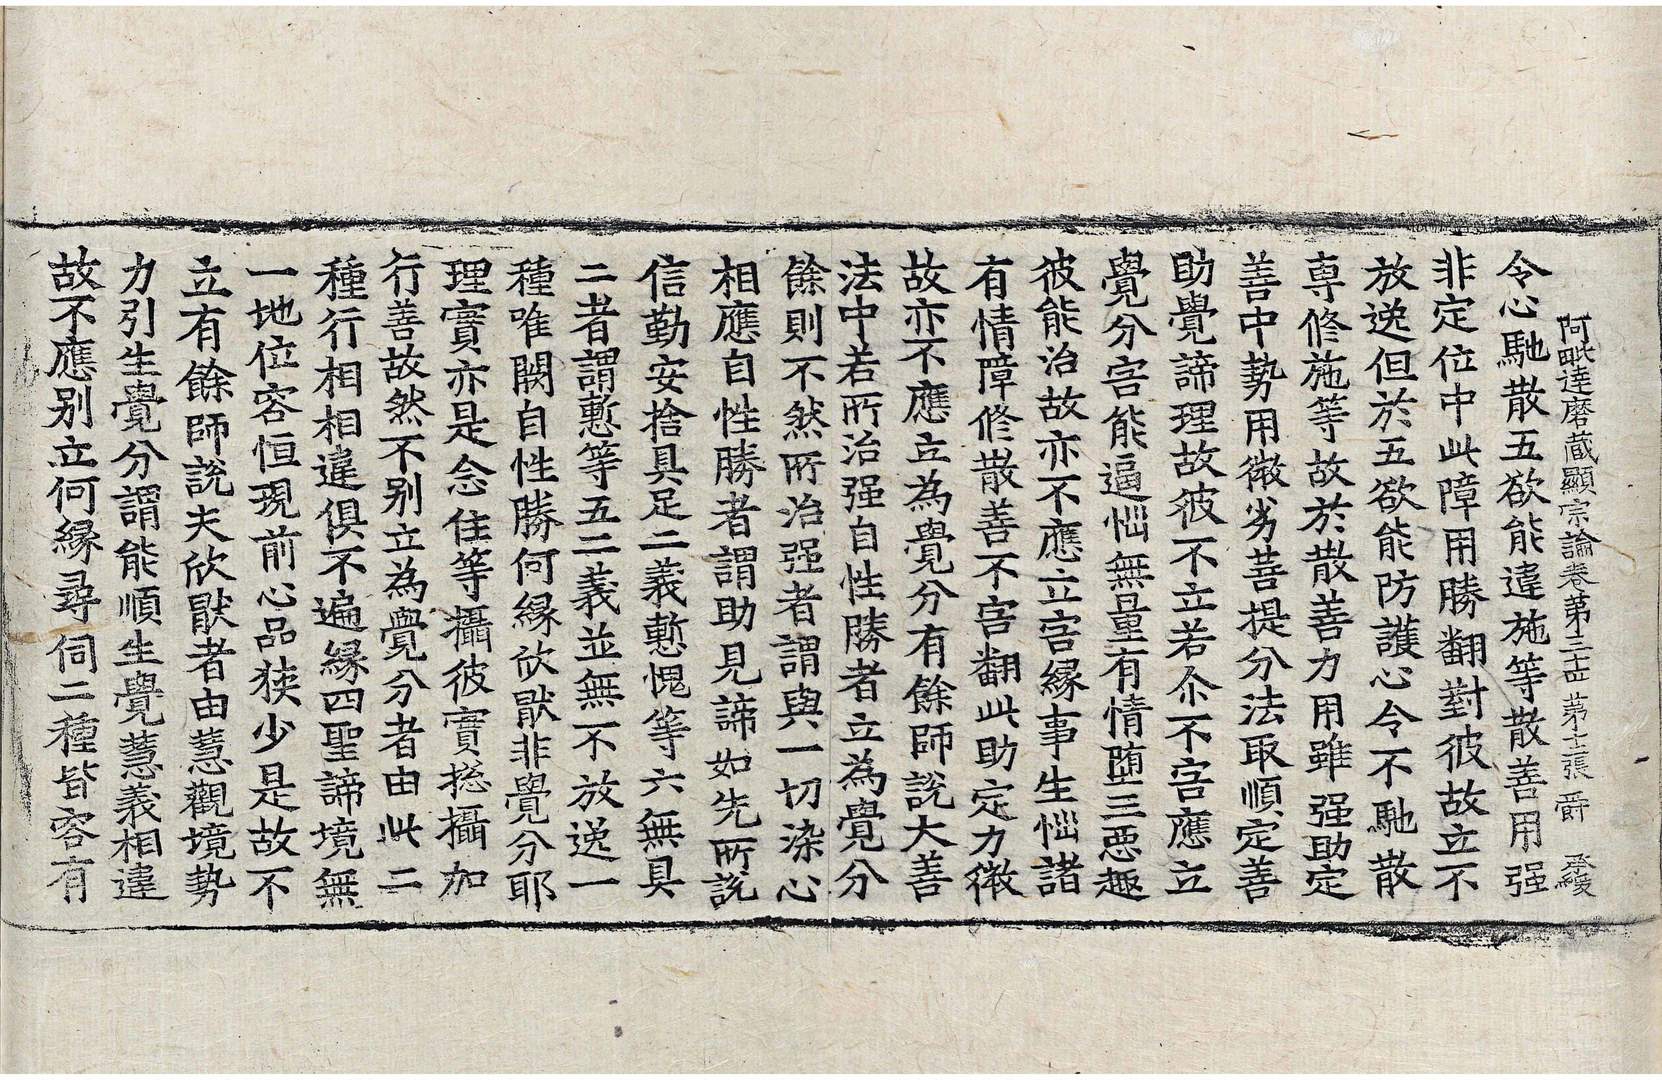 阿毗達磨藏顯宗論卷第三十四 第十二張 爵
令心馳散五欲能違施等散善用强
非定位中此障用勝翻對彼故立不
放逸但於五欲能防護心令不馳散
専修施等故於散善力用雖强助定
善中勢用微劣菩提分法取順定善
助覺諦理故彼不立若尒不害應立
覺分害能逼惱無量有情墮三惡趣
彼能治故亦不應立害緣事生惱諸
有情障修散善不害翻此助定力微
故亦不應立為覺分有餘師說大善
法中若所治强自性勝者立為覺分
餘則不然所治强者謂與一切染心
相應自性勝者謂助見諦如先所說
信勤安捨具足二義慙愧等六無具
二者謂慙等五二義並無不放逸一
種唯闕自性勝何緣欣猒非覺分耶
理實亦是念住等攝彼實揔攝加
行善故然不別立為覺分者由此二
種行相相違俱不遍緣四聖諦境無
一地位容恒現前心品狹少是故不
立有餘師說夫欣猒者由慧觀境勢
力引生覺分謂能順生覺慧義相違
故不應別立何緣尋伺二種皆容有